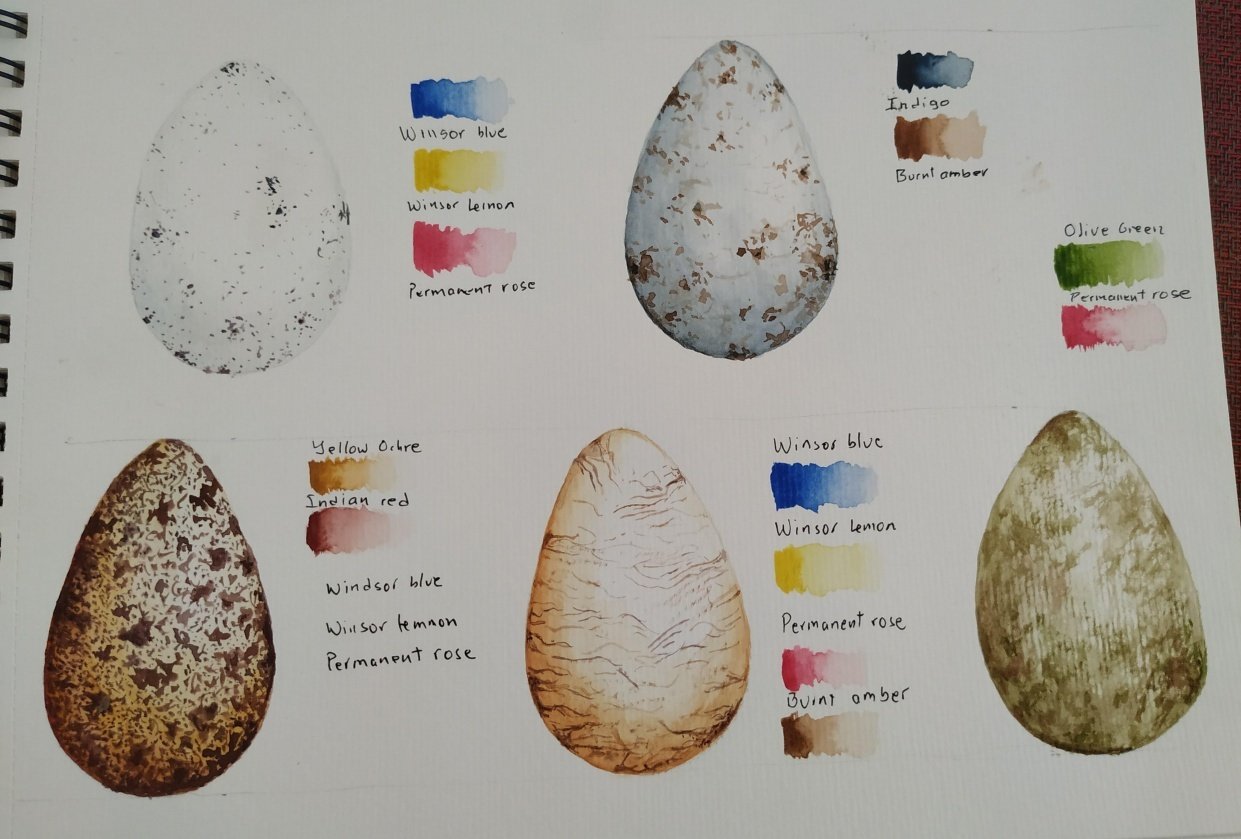 Winsor blue
Winsor lemon
Permanent rose
Indigo
Burnt amber
Olive Green
Permanent rose
Yellow Ochre
Indian red
Windsor blue
Winsor lemnon
Permanent rose
Winsor blue
Winsor lemon
Permanent rose
Burnt amber